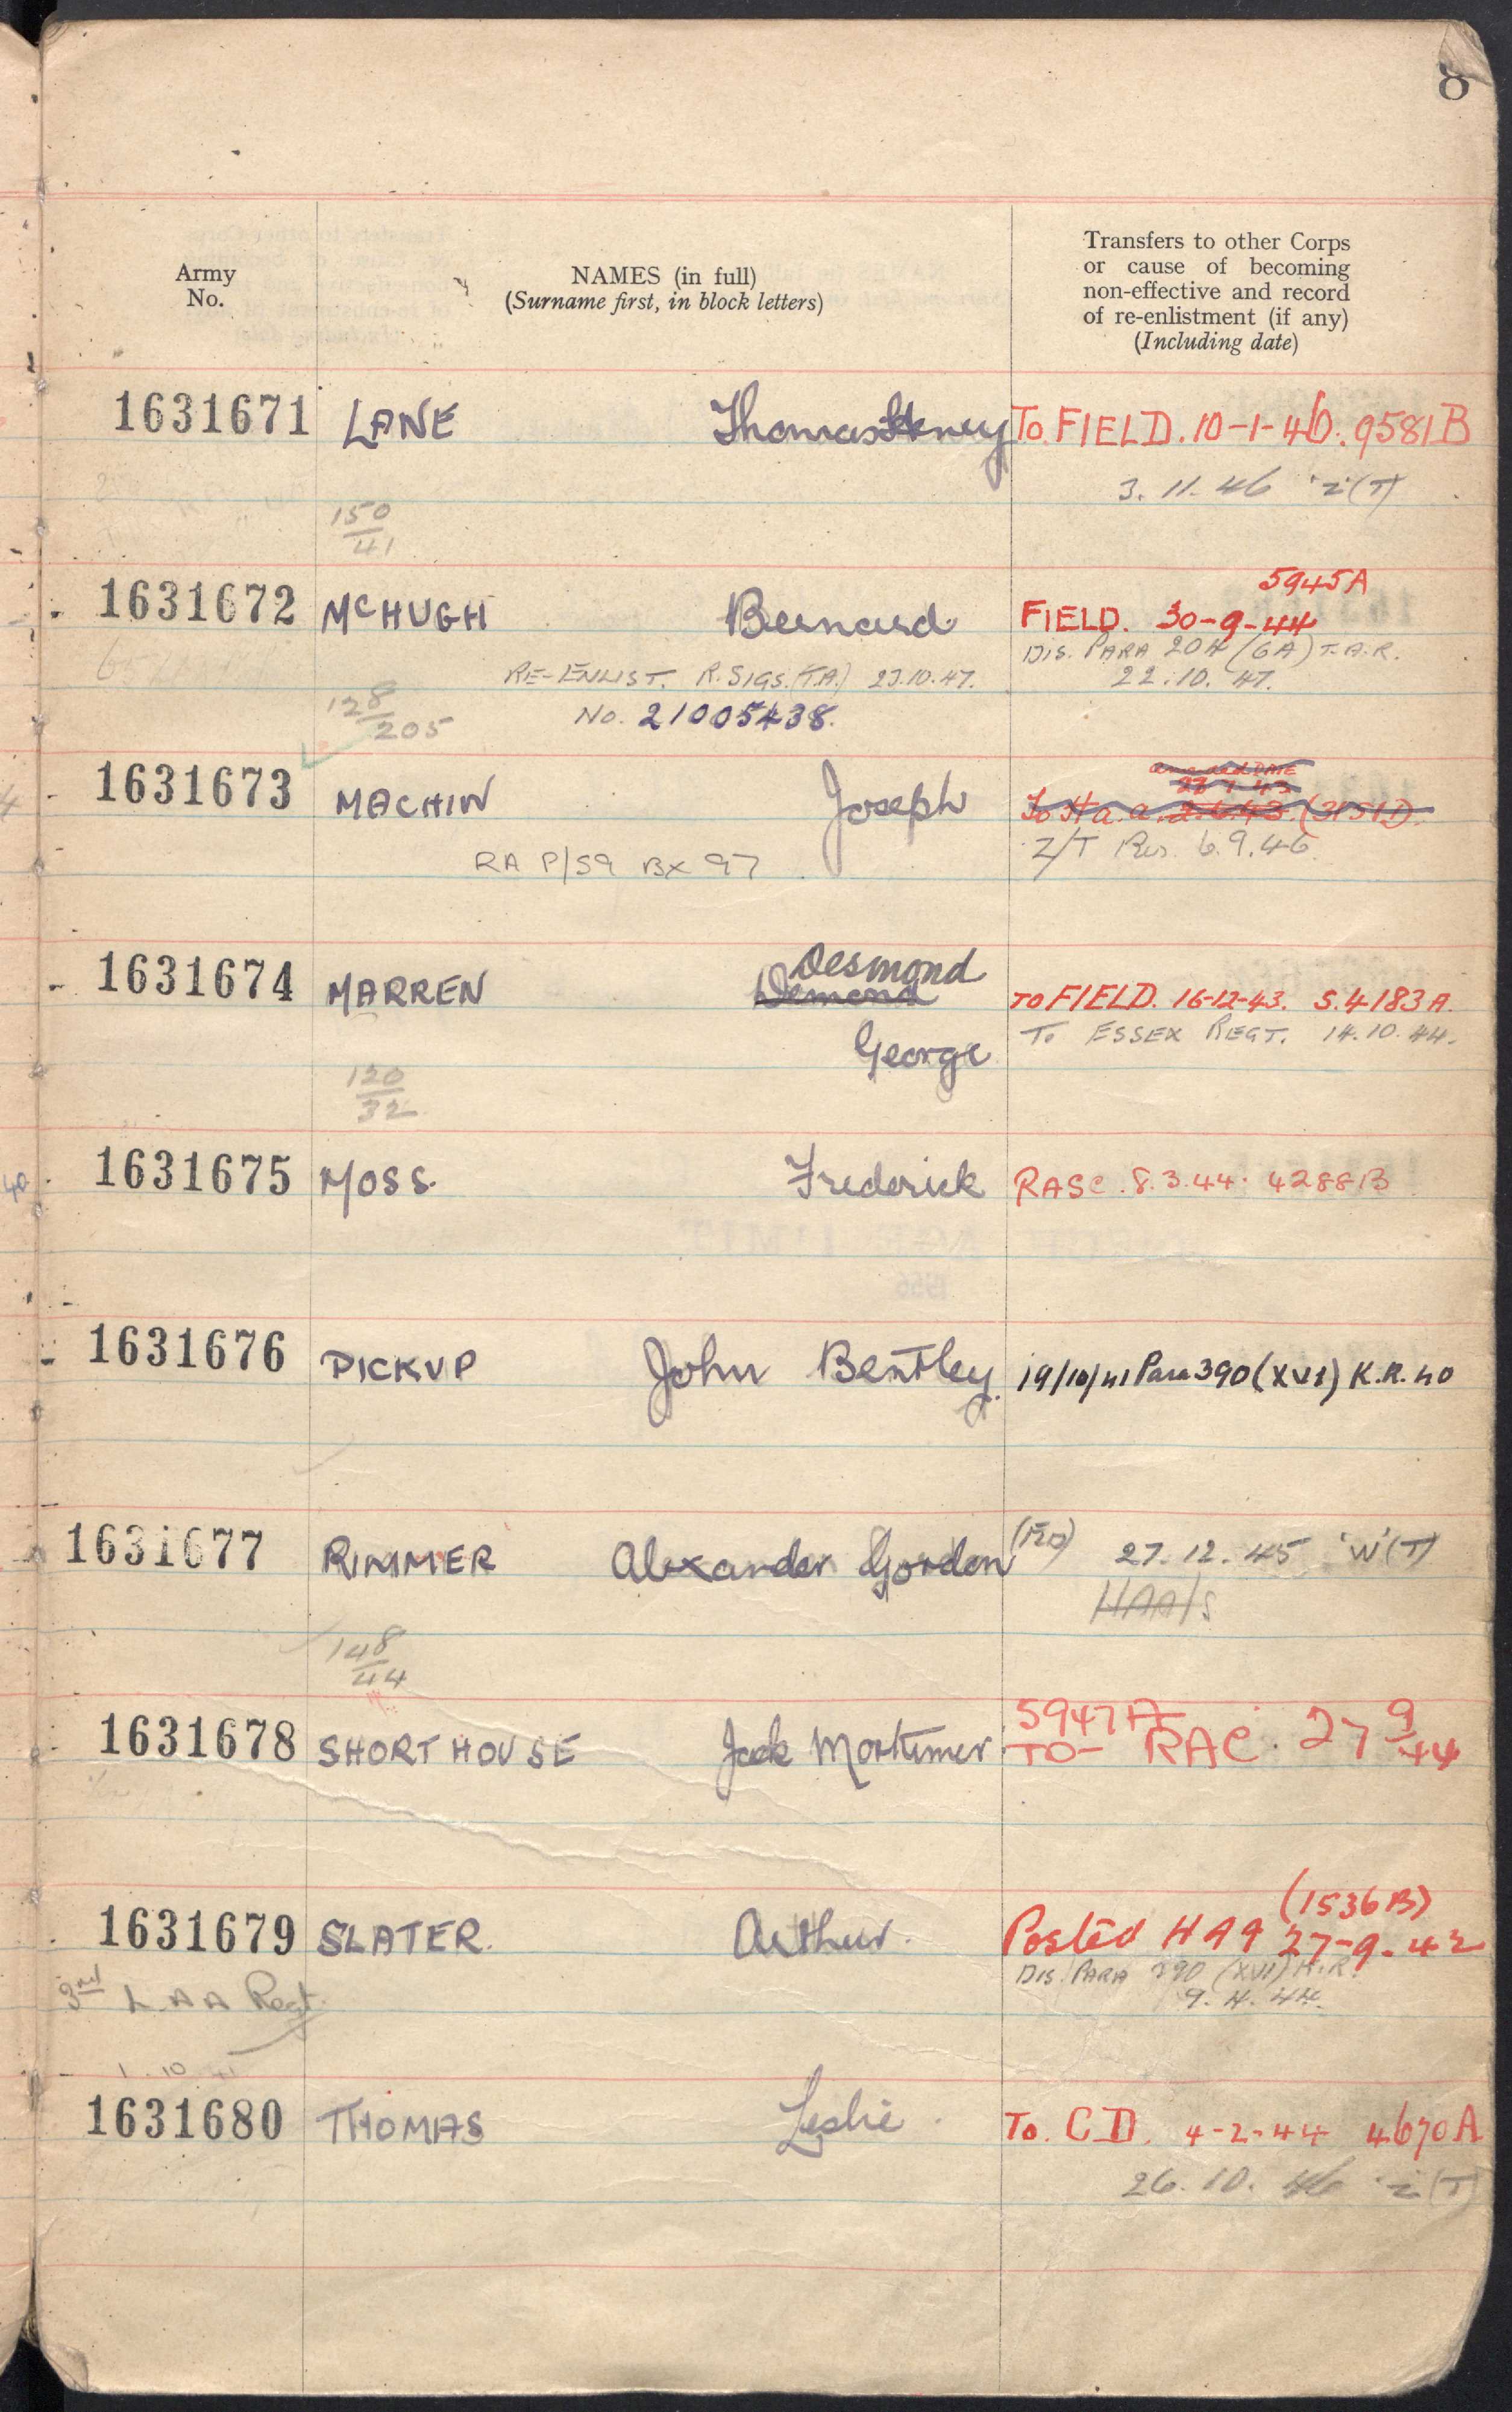 8
Army
No.
NAMES (in full)
(Surname first, in block letters)
Transfers to other Corps
or cause of becoming
non-effective and record
of re-enlistment (if any)
(Including date)
1631671 LANE Thomas Henry To FIELD. 10-1-46. 9581B
3. 11. 46 'Z'(T)
150
41
5945A
1631672 McHUGH Bernard FIELD. 30-9-44
DIS. PARA 204 (6A) T.A.R.
RE-ENLIST. R. SIGS. (T.A.) 23.10.47. 22.10.47.
128
205
No. 21005438.
amended DATE
1631673 MACHIN Joseph To H a. a. 2.6.43 (3151D)
Z/T Res. 6.9.46
RA P/59 BX 97
Desmond
1631674 MARREN Demond TO FIELD. 16-12-43. S.4183A.
George To ESSEX REGT. 14.10.44.
120
32
1631675 MOSS. Frederick RASC. 8.3.44. 4288B
1631676 PICKUP John Bentley. 19/10/41 Para 390 (XVI) K.R. 40
1631677 RIMMER Alexander Gordon 27.12.45 'W'(T)
HAA/S
148
44
5947A
1631678 SHORTHOUSE Jack Mortimer TO- RAC. 27 9/44
(1536B)
1631679 SLATER. Arthur. Posted HAA 27-9-42
DIS. PARA 390 (XVI) K.R.
3rd L A A Regt. 9.4.44.
1. 10 41
1631680 THOMAS Leslie. To. CD. 4-2-44 4670A
26.10.46 'Z'(T)